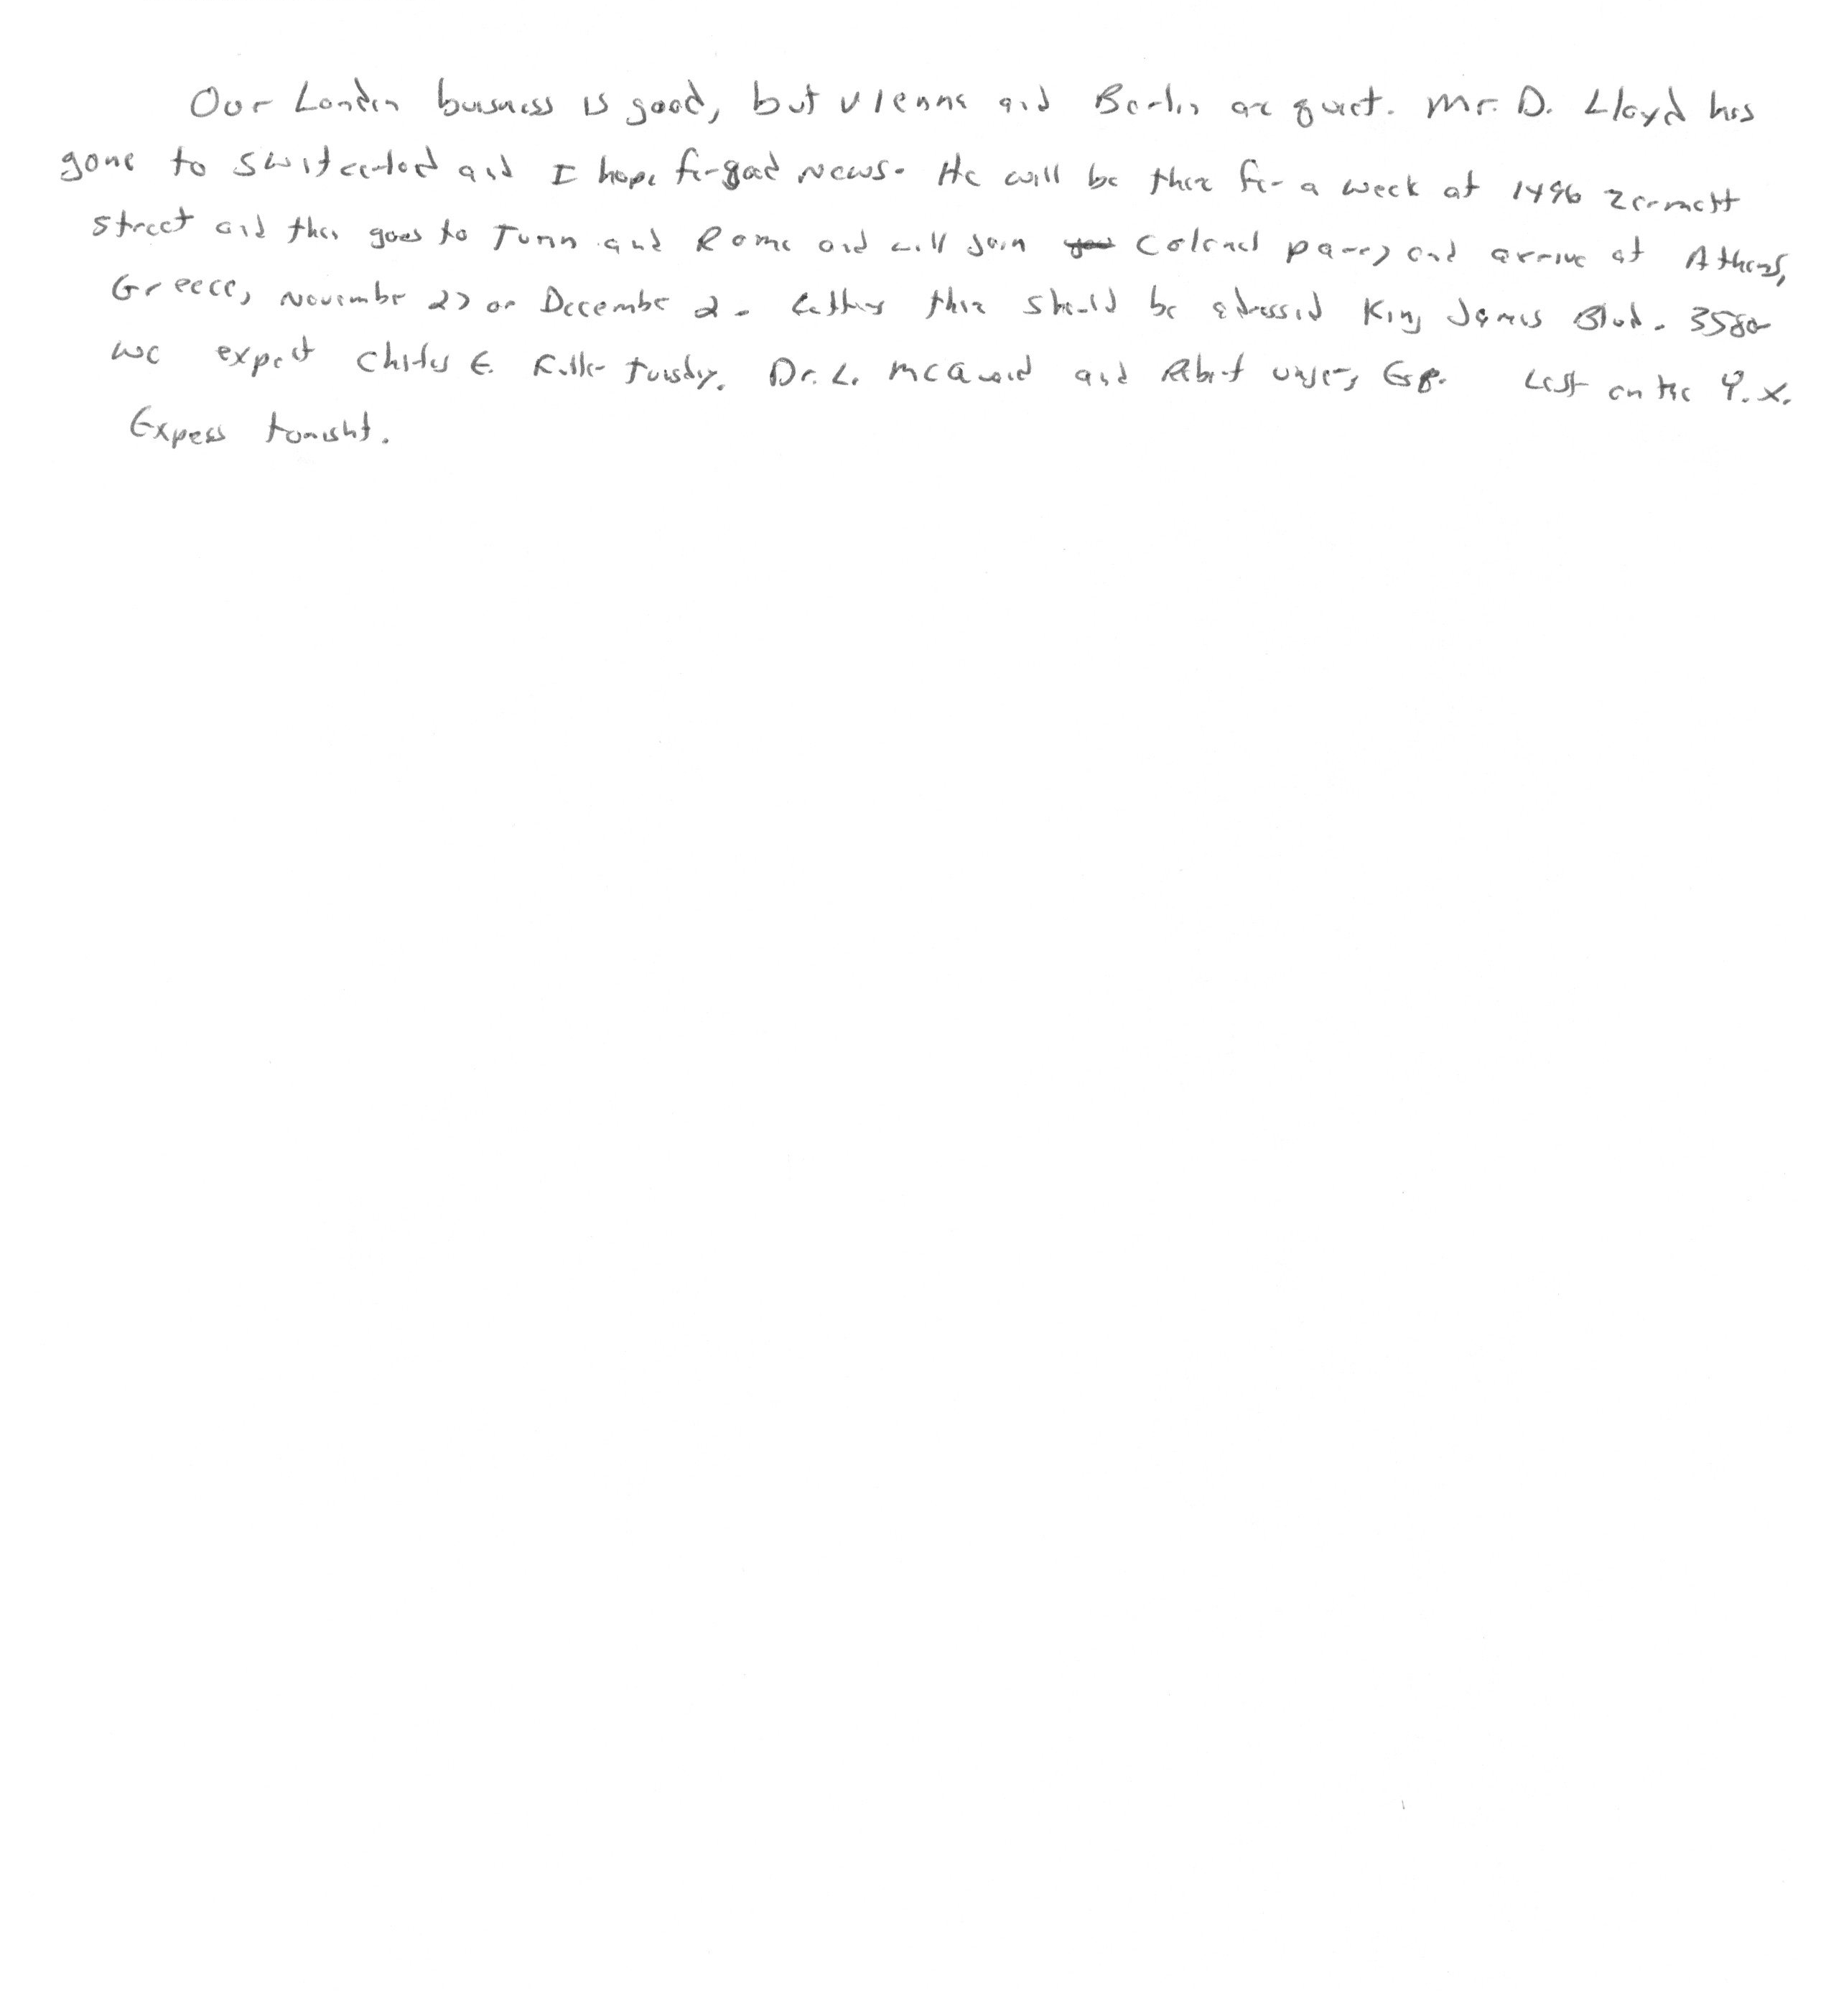 Our London buisness is good, but Vienna and Berlin are quiet. Mr. D. Lloyd has
gone to Switzerland and I hope for good news. He will be there for a week at 1496 Zermott
Street and then goes to Turin and Rome and will join Colonel Parry and arrive at Athens,
Greece, November 27 or December 2. Letters there should be adressed King James Blvd. 3580
We expect Charles E. Fuller Tuesday. Dr. L. McQuaid and Robert Unger, Esq. Left on the Y.X.
Express tonight.